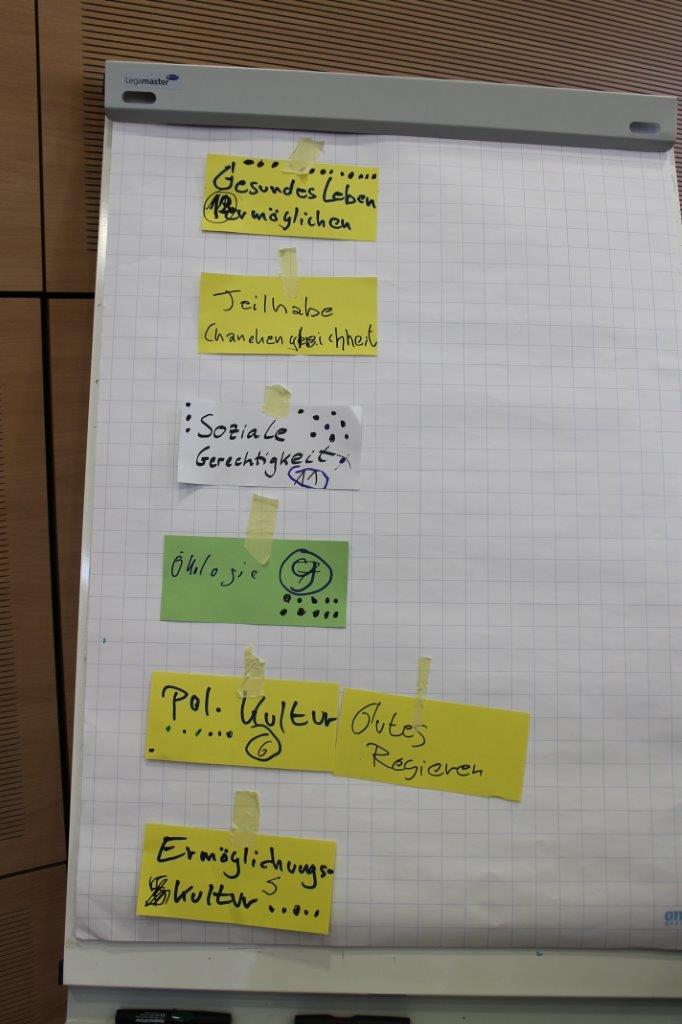 Legamaster
Gesundes Leben
12 ermöglichen
Teilhabe
Chanchengleichheit
Soziale
Gerechtigkeit
11
Ökologie
Pol. Kultur
6
Gutes
Regieren
Ermöglichungs-
Kultur 5